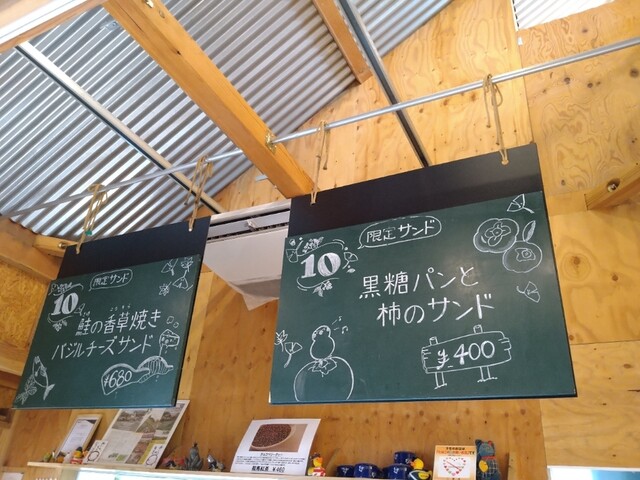 限定サンド
10
鮭の香草焼き
バジルチーズサンド
¥680
限定サンド
10
黒糖パンと
柿のサンド
¥400